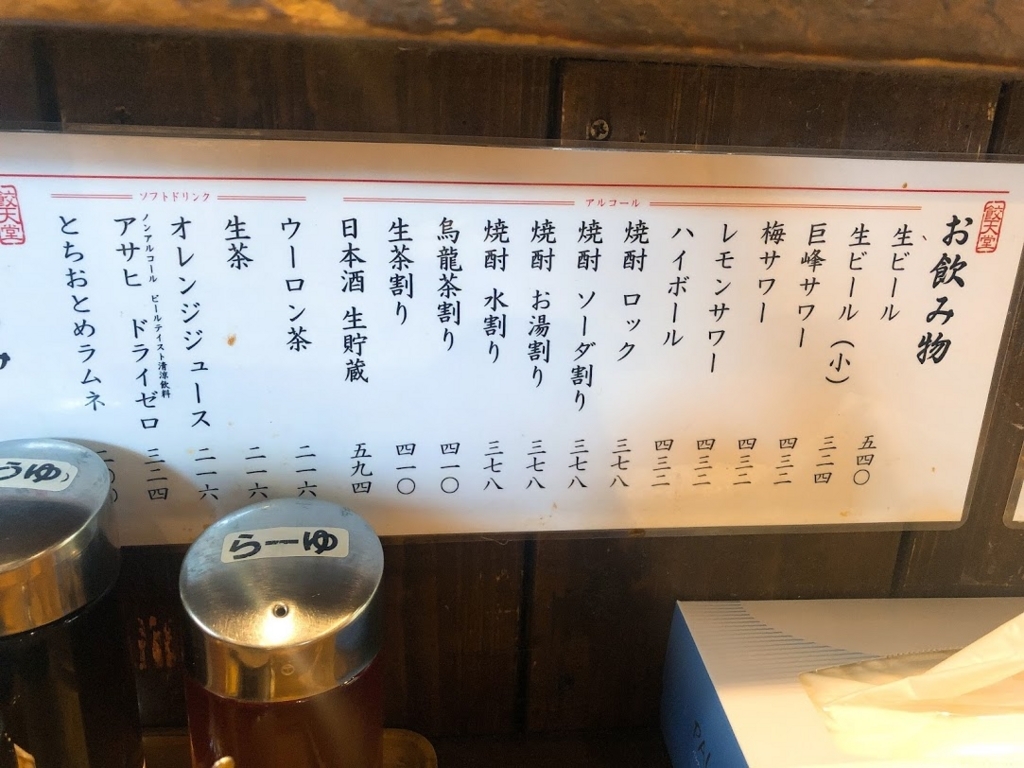 餃天堂
お飲み物
アルコール
生ビール 五四〇
生ビール（小） 三二四
巨峰サワー 四三二
梅サワー 四三二
レモンサワー 四三二
ハイボール 四三二
焼酎 ロック 三七八
焼酎 ソーダ割り 三七八
焼酎 お湯割り 三七八
焼酎 水割り 三七八
烏龍茶割り 四一〇
生茶割り 四一〇
日本酒 生貯蔵 五九四
ソフトドリンク
ウーロン茶 二一六
生茶 二一六
オレンジジュース 二一六
ノンアルコール ビールテイスト清涼飲料
アサヒ ドライゼロ 三二四
とちおとめラムネ
餃天堂
らーゆ